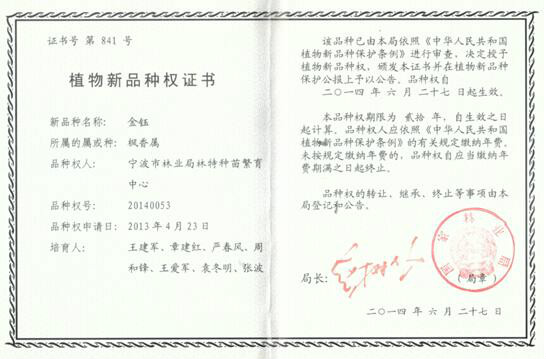 证书号 第 841 号
植物新品种权证书
新品种名称: 金钰
所属的属或种: 枫香属
品种权人: 宁波市林业局林特种苗繁育
中心
品种权号: 20140053
品种权申请日: 2013 年 4 月 23 日
培育人: 王建军、章建红、严春风、周
和锋、王爱军、袁冬明、张波
该品种已由本局依照《中华人民共和国
植物新品种保护条例》进行审查, 决定授予
植物新品种权, 颁发本证书并在植物新品种
保护公报上予以公告。品种权自
二〇一四 年 六 月 二十七 日起生效。
本品种权期限为 贰拾 年, 自生效之日
起计算。品种权人应依照《中华人民共和国
植物新品种保护条例》的有关规定缴纳年费。
未按规定缴纳年费的, 品种权自应当缴纳年
费期满之日起终止。
品种权的转让、继承、终止等事项由本
局登记和公告。
国家林业局
局长:
(局章)
二〇一四 年 六 月 二十七 日